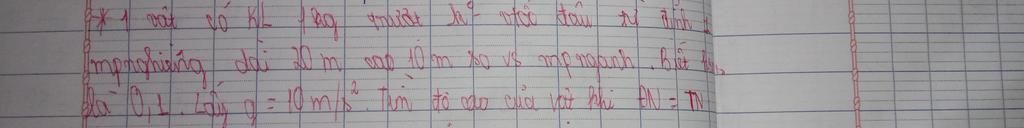 * 1 vật có KL 1kg trượt k° vtốc đầu từ đỉnh 1
mpnghiêng dài 20m cao 10m so vs mpngang. Biết
là 0,1. Lấy g = 10m/s². Tìm độ cao của vật khi ĐN = TN